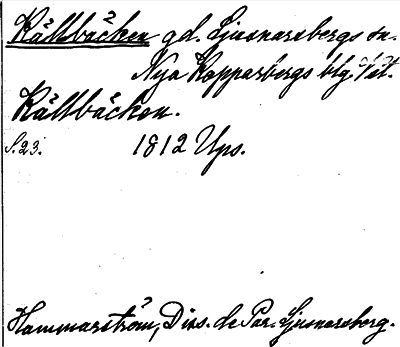 Källbäcken gd. Ljusnarsbergs sn.
Nya Kopparbergs blg. Vst.
Källbäcken.
S. 23. 1812 Ups.
Hammarström, Diss. de Par. Ljusnarsberg.